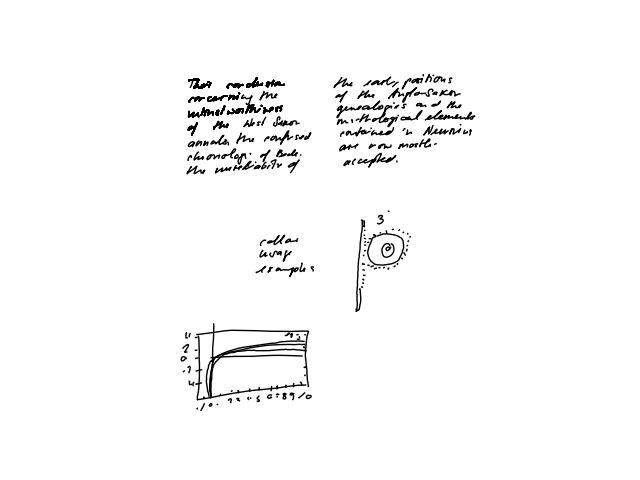 Their conclusion
concerning the
untrustworthiness
of the West Saxon
annals, the confused
chronology of Bede.
the unreliability of
the early positions
of the Anglo-Saxon
genealogies and the
mythological elements
contained in Nennius
are now mostly
accepted.
collar
usage
examples
3
4
2
0